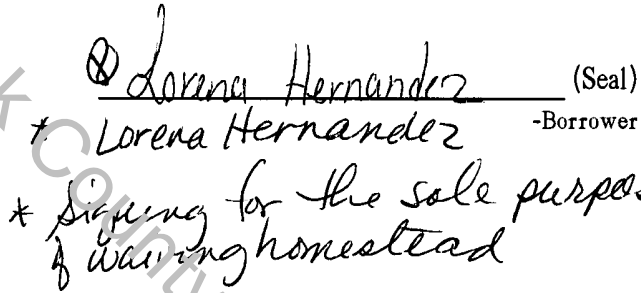 ⊗ Lorena Hernandez (Seal)
* Lorena Hernandez -Borrower
* Signing for the sole purpos
of waiving homestead
k County